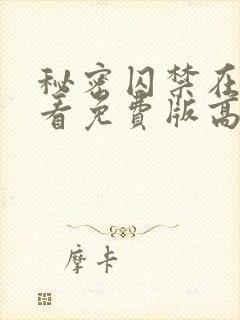 秘密囚禁在
看免费版高
摩卡